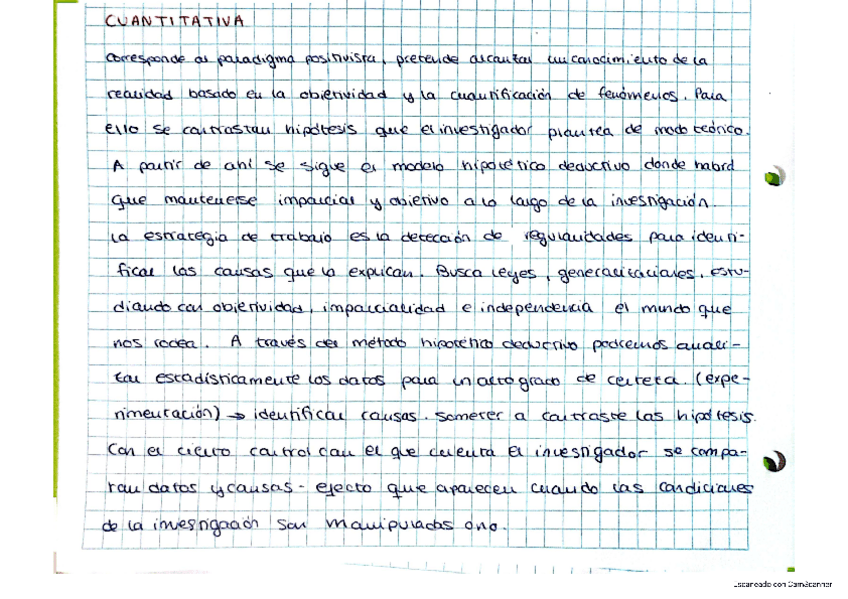 CUANTITATIVA
corresponde al paradigma positivista, pretende alcanzar un conocimiento de la
realidad basado en la objetividad y la cuantificación de fenómenos. Para
ello se contrastan hipótesis que el investigador plantea de modo teórico.
A partir de ahí se sigue el modelo hipotético deductivo donde habrá
que mantenerse imparcial y objetivo a lo largo de la investigación.
La estrategia de trabajo es la detección de regularidades para identi-
ficar las causas que la explican. Busca leyes, generalizaciones, estu-
diando con objetividad, imparcialidad e independencia el mundo que
nos rodea. A través del método hipotético deductivo podremos anali-
zar estadísticamente los datos para un alto grado de certeza. (expe-
rimentación) → identificar causas. someter a contraste las hipótesis.
Con el cierto control con el que cuenta el investigador se compa-
ran datos y causas - efecto que aparecen cuando las condiciones
de la investigación son manipuladas o no.
Escaneado con CamScanner